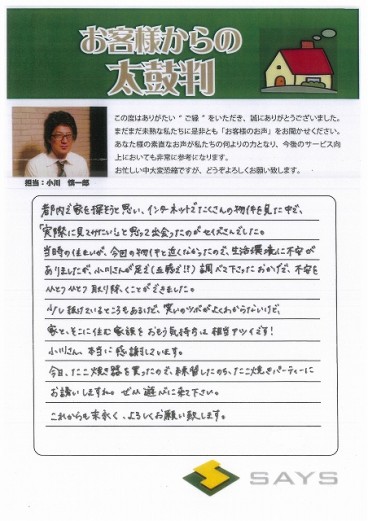 お客様からの
太鼓判
この度はありがたい“ご縁”をいただき、誠にありがとうございました。
まだまだ未熟な私たちに是非とも「お客様のお声」をお聞かせください。
あなた様の素直なお声が私たちの何よりの力となり、今後のサービス向
上においても非常に参考になります。
お忙しい中大変恐縮ですが、どうぞよろしくお願い致します。
担当:小川 慎一郎
都内で家を探そうと思い、インターネットでたくさんの物件を見た中で、
「実際に見てみたい」と思って出会ったのがセイズさんでした。
当時の住まいが、今回の物件と近くなかったので、生活環境に不安が
ありましたが、小川さんが足で(五感で!!)調べて下さったおかげで、不安を
ひとつひとつ取り除くことができました。
少し抜けているところもあるけど、笑いのツボがよくわからないけど、
家と、そこに住む家族をおもう気持ちは相当アツイです!
小川さん、本当に感謝しています。
今日、たこ焼き器を買ったので、練習したのち、たこ焼きパーティーに
お誘いしますね。ぜひ遊びに来て下さい。
これからも末永く、よろしくお願い致します。
SAYS